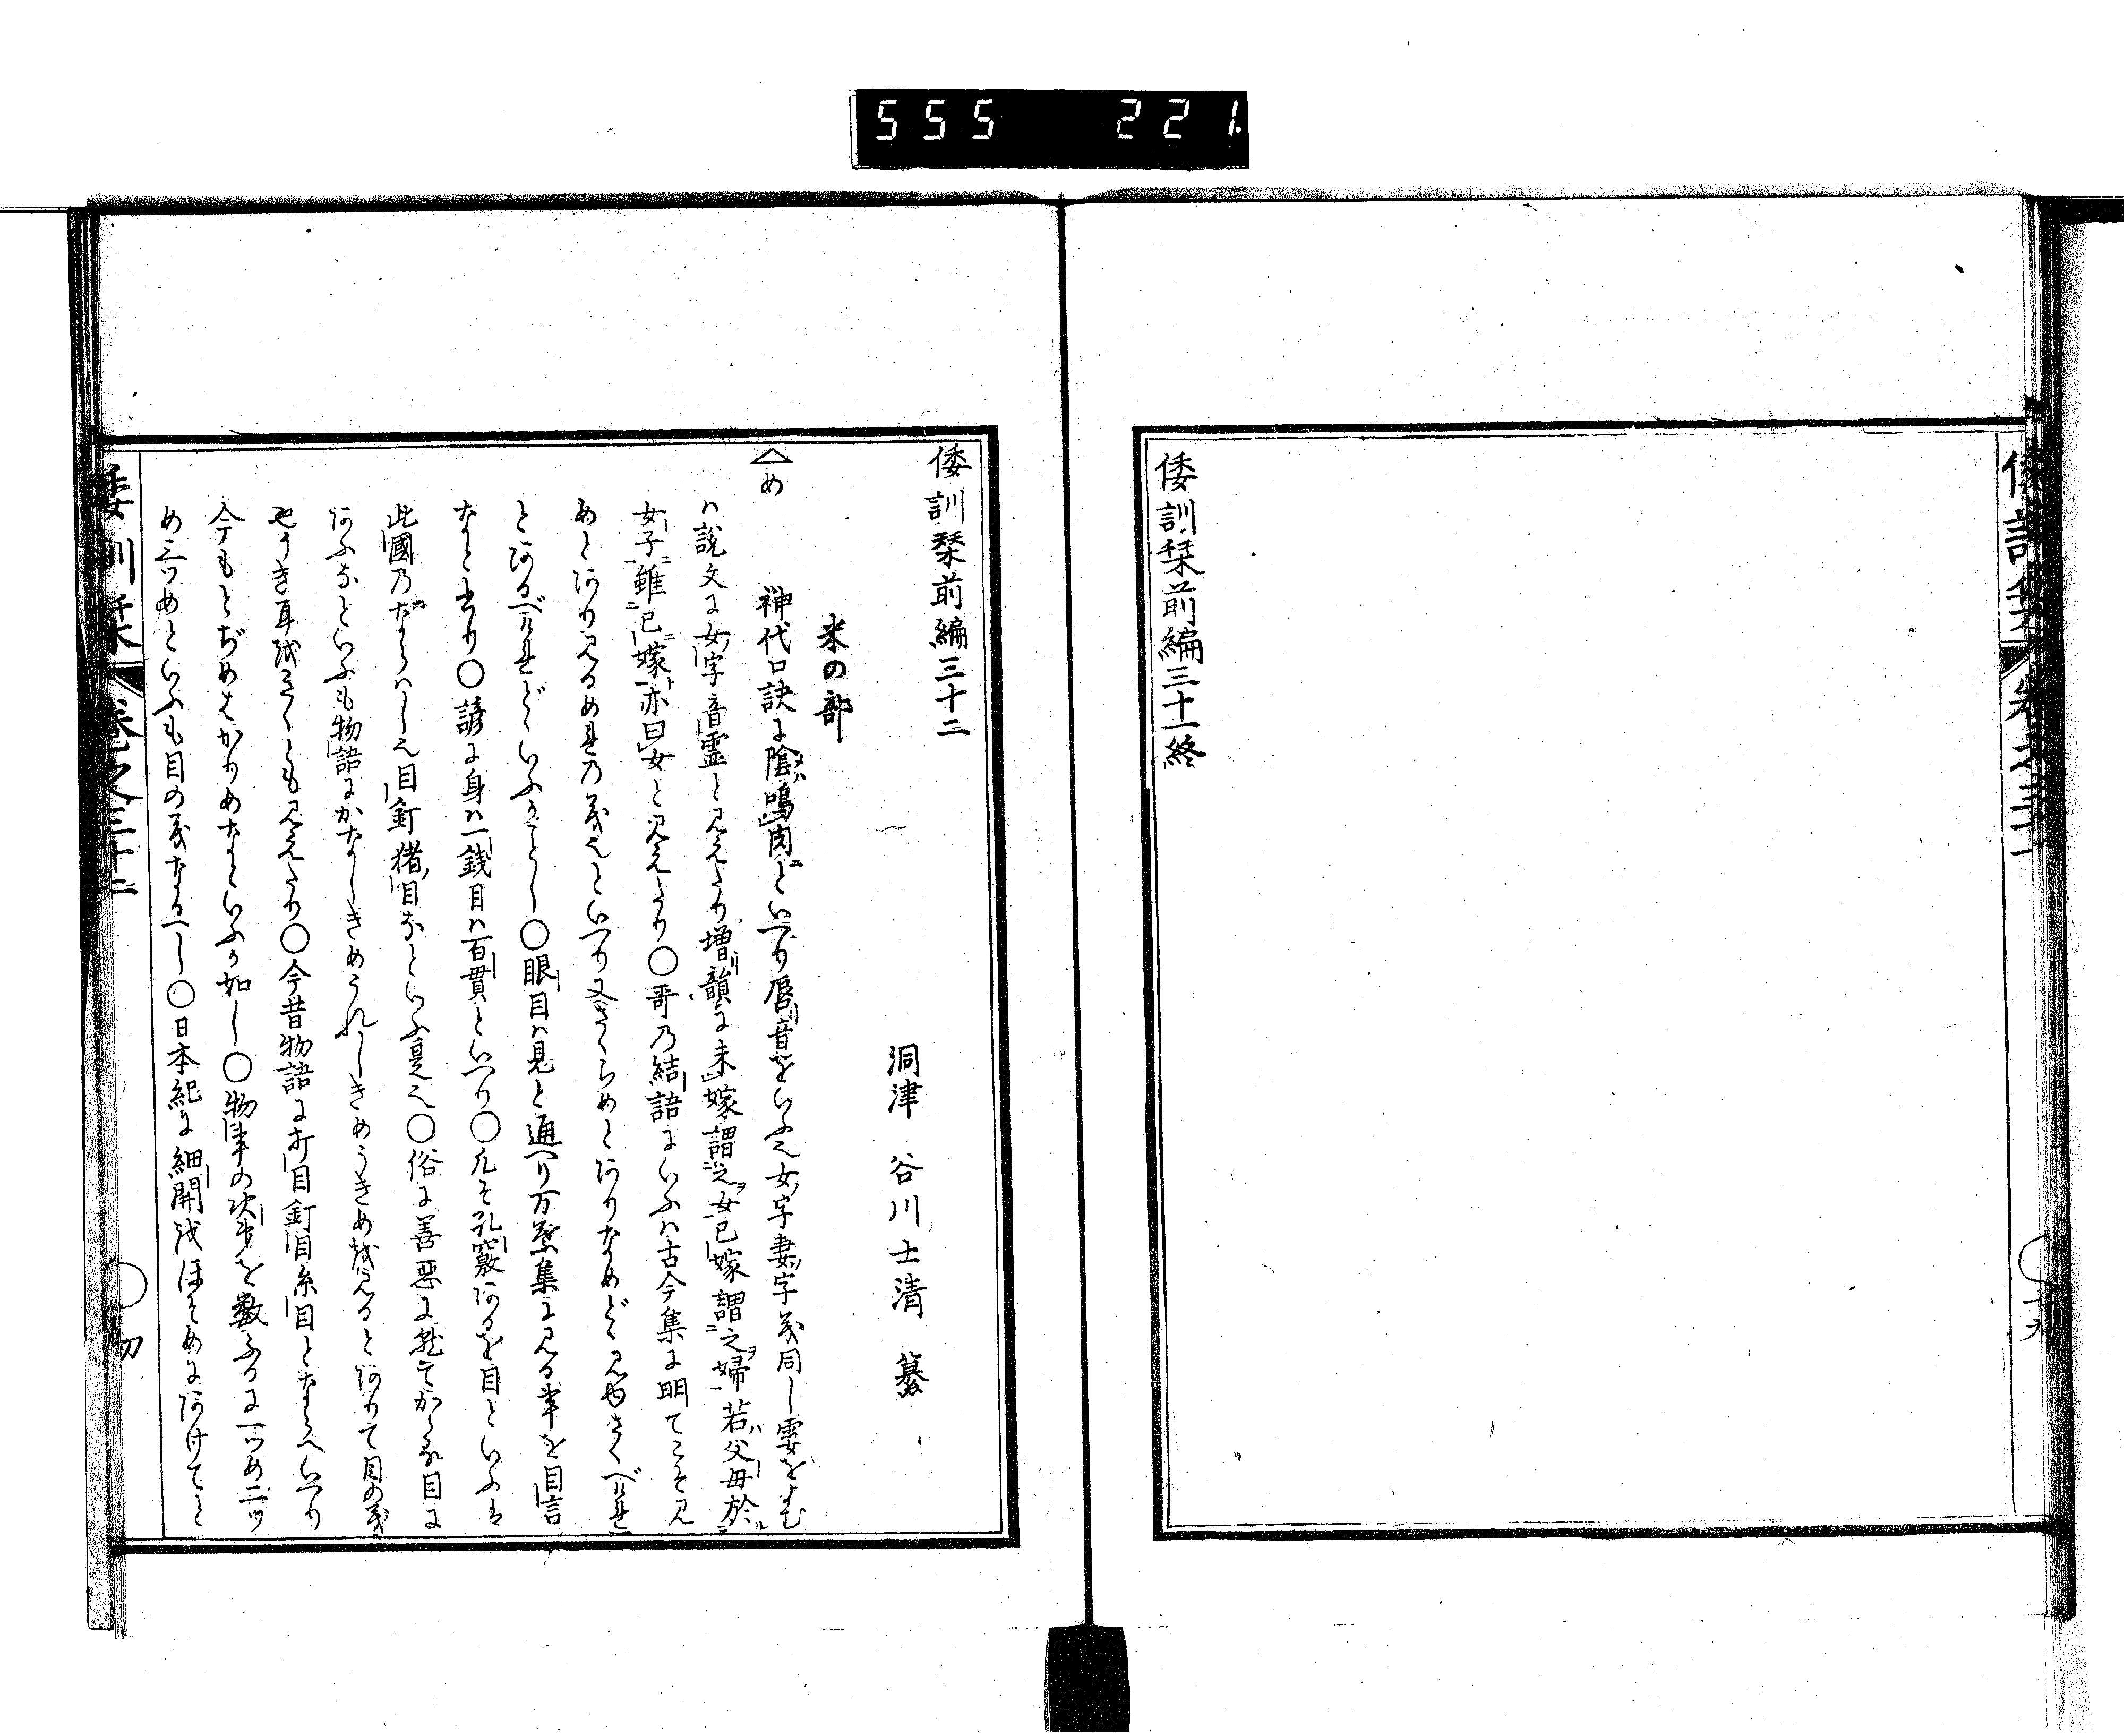 555 221.
倭訓栞前編三十一終
倭訓栞前編三十二
洞津 谷川士清 纂
米の部
め 神代口訣に陰鳴肉といへり唇音をいふ也女字妻字義同し雲をよむ
ハ説文に女字音霊と見えたり増韻に未嫁謂之女已嫁謂之婦若父母於
女子雖已嫁亦曰女と見えたり〇哥乃結語にいふハ古今集に明てこそ見
めとあり見るめ是乃義也といへり又さくらめとありなめど見ゆさくべけれ
とあるべけれどゝいふかことし〇眼目ハ見と通へり万葉集に見る事を目言
なといへり〇諺に身ハ一銭目ハ百貫といへり〇凡そ孔竅あるを目といふは
此國乃ならハし也目釘猪目なといふ是也〇俗に善悪に就てかゝる目に
あふなといふも物語にかなしきめうれしきめうきめを見るとありて目の義
やうき耳をきくとも見えたり〇今昔物語に打目釘目糸目とならへいへり
今もとぢめはかりめなといふか如し〇物事の次第を数ふるに一ツめ二ツ
め三ツめといふも目の義なるへし〇日本紀に細開をほそめにあけてと
倭訓栞 巻之三十二 〇初